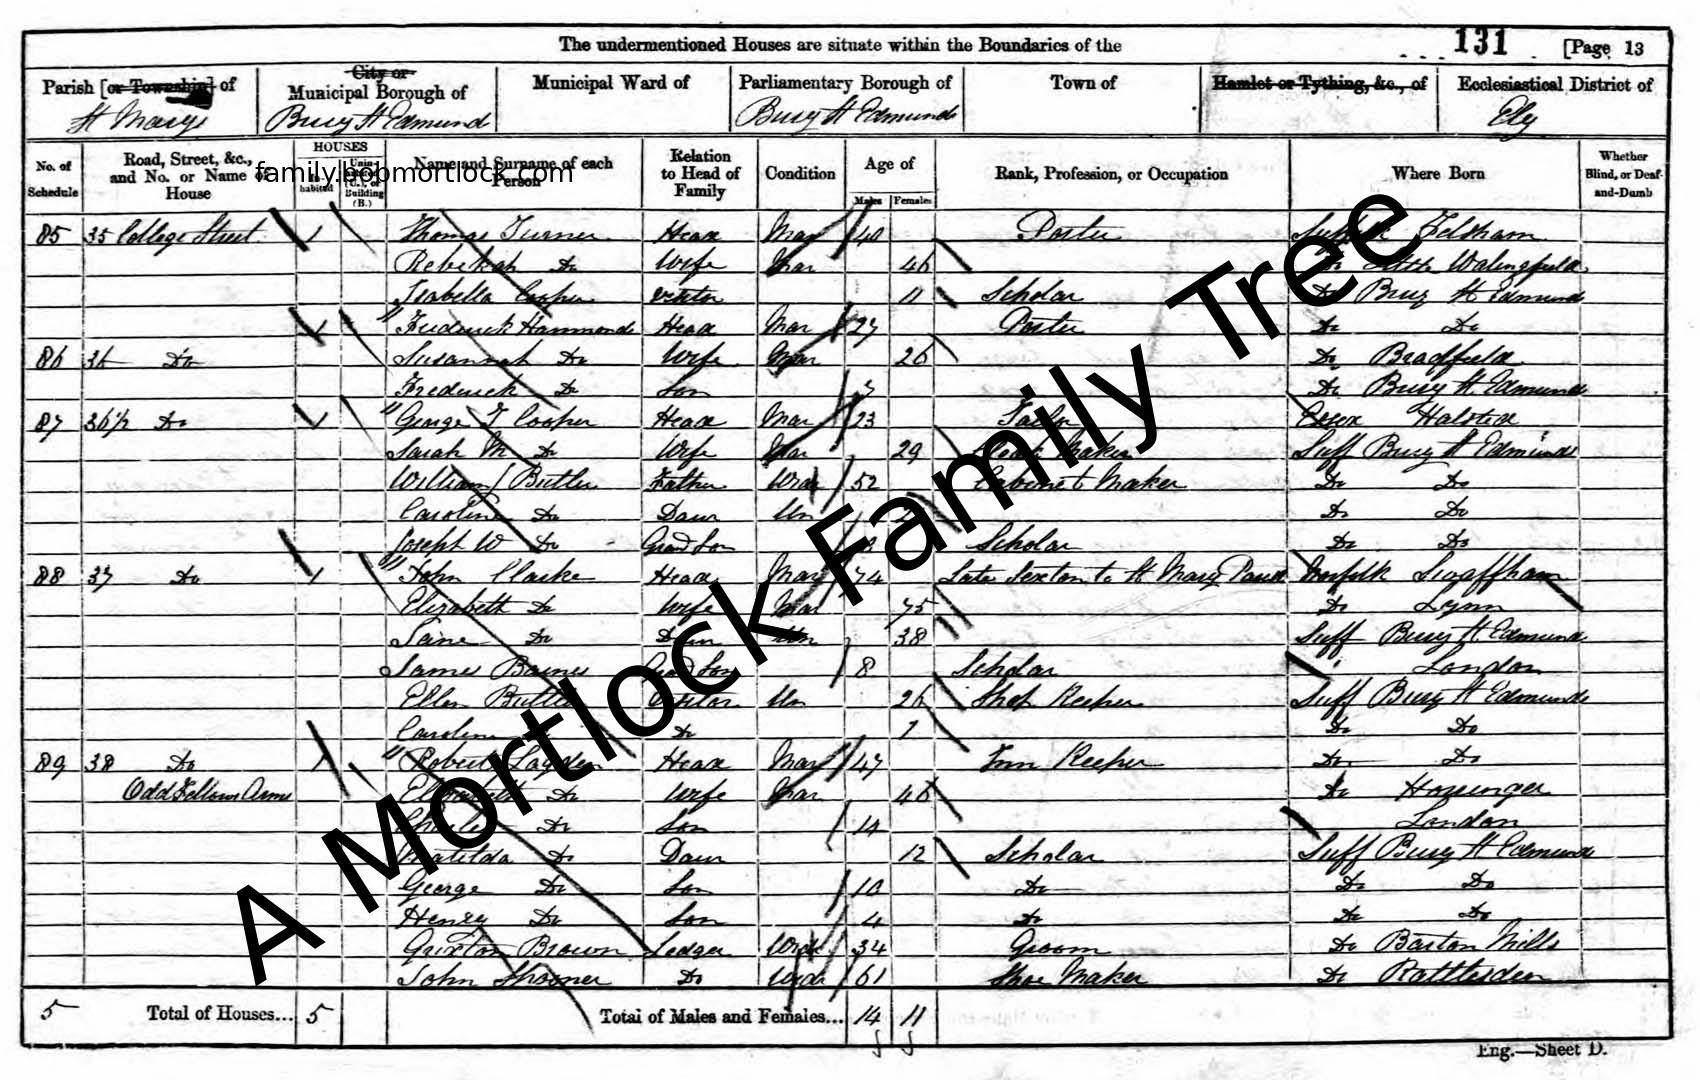 The undermentioned Houses are situate within the Boundaries of the
131 [Page 13
Parish [or Township] of
City or Municipal Borough of
Municipal Ward of
Parliamentary Borough of
Town of
Hamlet or Tything, &c., of
Ecclesiastical District of
St Marys
Bury St Edmund
Bury St Edmunds
Ely
No. of Schedule
Road, Street, &c., and No. or Name of House
HOUSES
Inhabited
Uninhabited (U.), or Building (B.)
Name and Surname of each Person
Relation to Head of Family
Condition
Age of
Males
Females
Rank, Profession, or Occupation
Where Born
Whether Blind, or Deaf-and-Dumb
family.bobmortlock.com
85 35 College Street 1 Thomas Turner Head Mar 40 Porter Suffolk Felsham
Rebekah Do Wife Mar 46 Do Little Walingfield
Isabella Cooper visitor 11 Scholar Do Bury St Edmund
1 Frederick Hammond Head Mar 27 Porter Do Do
86 36 Do Susannah Do Wife Mar 26 Do Bradfield
Frederick Do Son Do Bury St Edmund
87 36½ Do 1 George T Cooper Head Mar 23 Tailor Essex Halsted
Sarah M Do Wife Mar 29 Maker Suff Bury St Edmunds
William Butler Father Wid 52 Cabinet Maker Do Do
Caroline Do Daur Un Do Do
Joseph W Do Grand Son Scholar Do Do
88 37 Do 1 John Clarke Head Mar 74 Late Sexton to St Mary Parish Norfolk Swaffham
Elizabeth Do Wife Mar 75 Do Lynn
Jane Do Daur Un 38 Suff Bury St Edmund
James Baines Grand Son 8 Scholar London
Ellen Butler Visitor Un 26 Shop Keeper Suff Bury St Edmunds
Caroline Do 7 Do Do
89 38 Do 1 Robert Head Mar 47 Inn Keeper Do Do
Odd Fellows Arms Elizabeth Do Wife Mar 46 Do Horringer
Charles Do Son 14 London
Matilda Do Daur 12 Scholar Suff Bury St Edmund
George Do Son 10 Do Do Do
Henry Do Son 4 Do Do Do
Brown Lodger Wid 34 Groom Do Barton Mills
John Spooner Do Wid 61 Shoe Maker Do Rattlesden
5 Total of Houses... 5 Total of Males and Females... 14 11
Eng.—Sheet D.
A Mortlock Family Tree